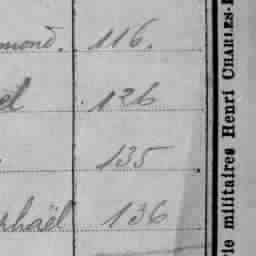 mond. 116.
el 126
135
phaël 136
ie militaires Henri CHARLES-